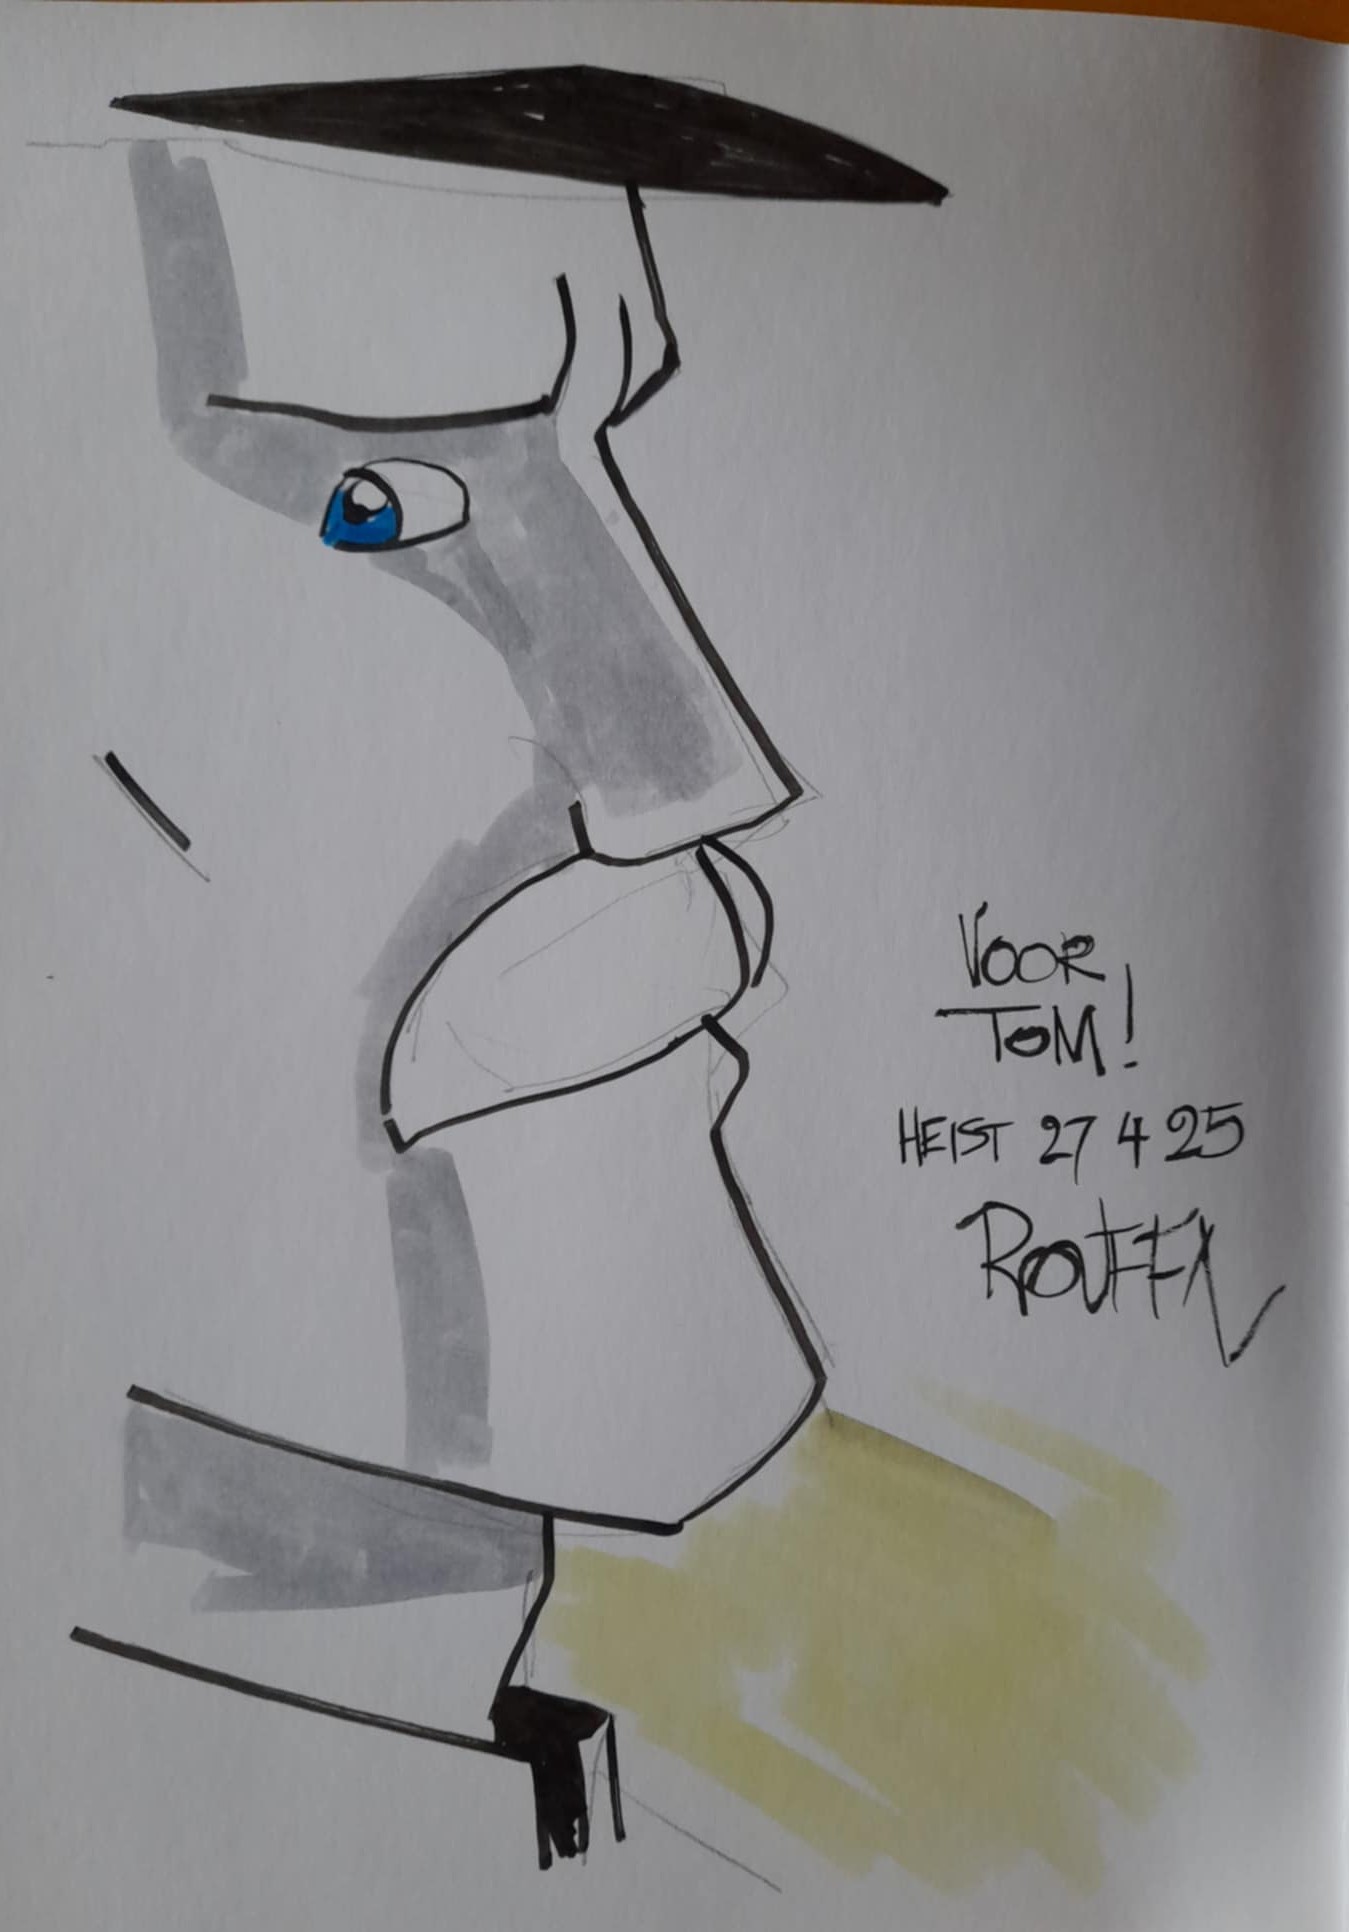 VOOR
TOM!
HEIST 27 4 25
ROUFFA